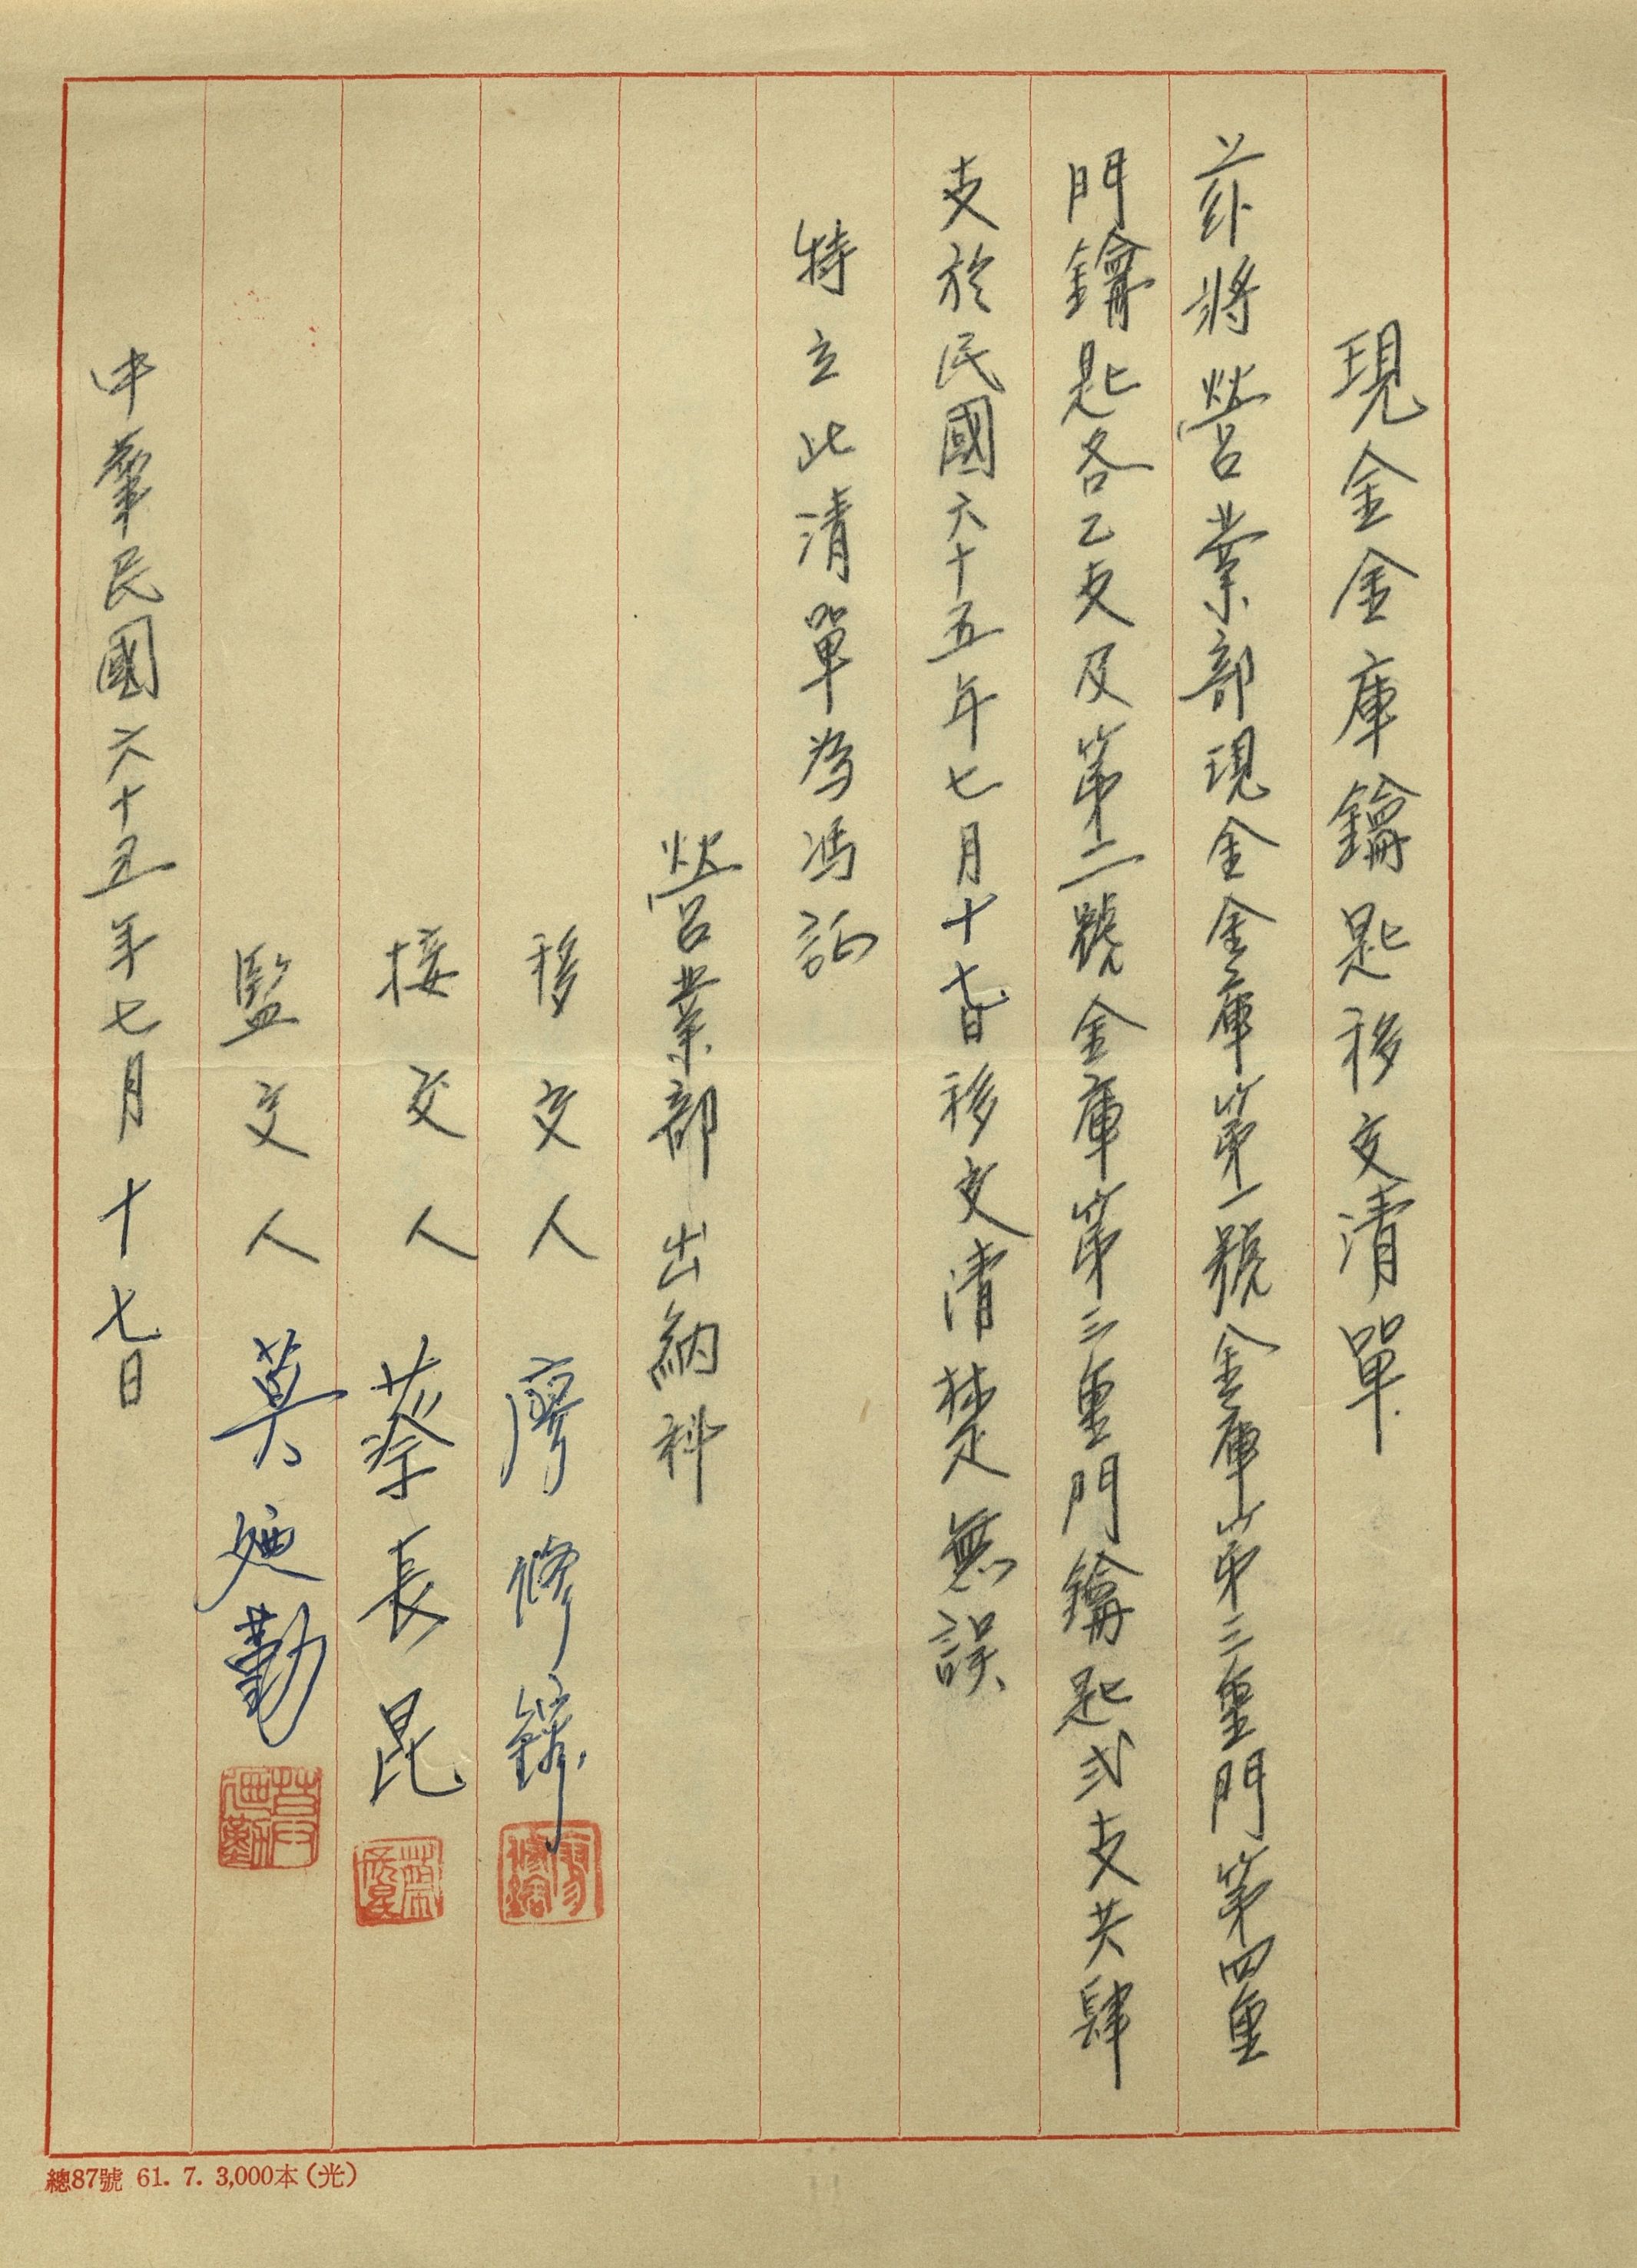 現金金庫鑰匙移交清單
茲將營業部現金金庫第一號金庫第三重門第四重
門鑰匙各乙支及第二號金庫第三重門鑰匙弍支共肆
支於民國六十五年七月十七日移交清楚無誤
特立此清單為馮証
營業部出納科
移交人 廖修鐸
接交人 蔡長昆
監交人 莫廼勤
中華民國六十五年七月十七日
總87號 61. 7. 3,000本(光)